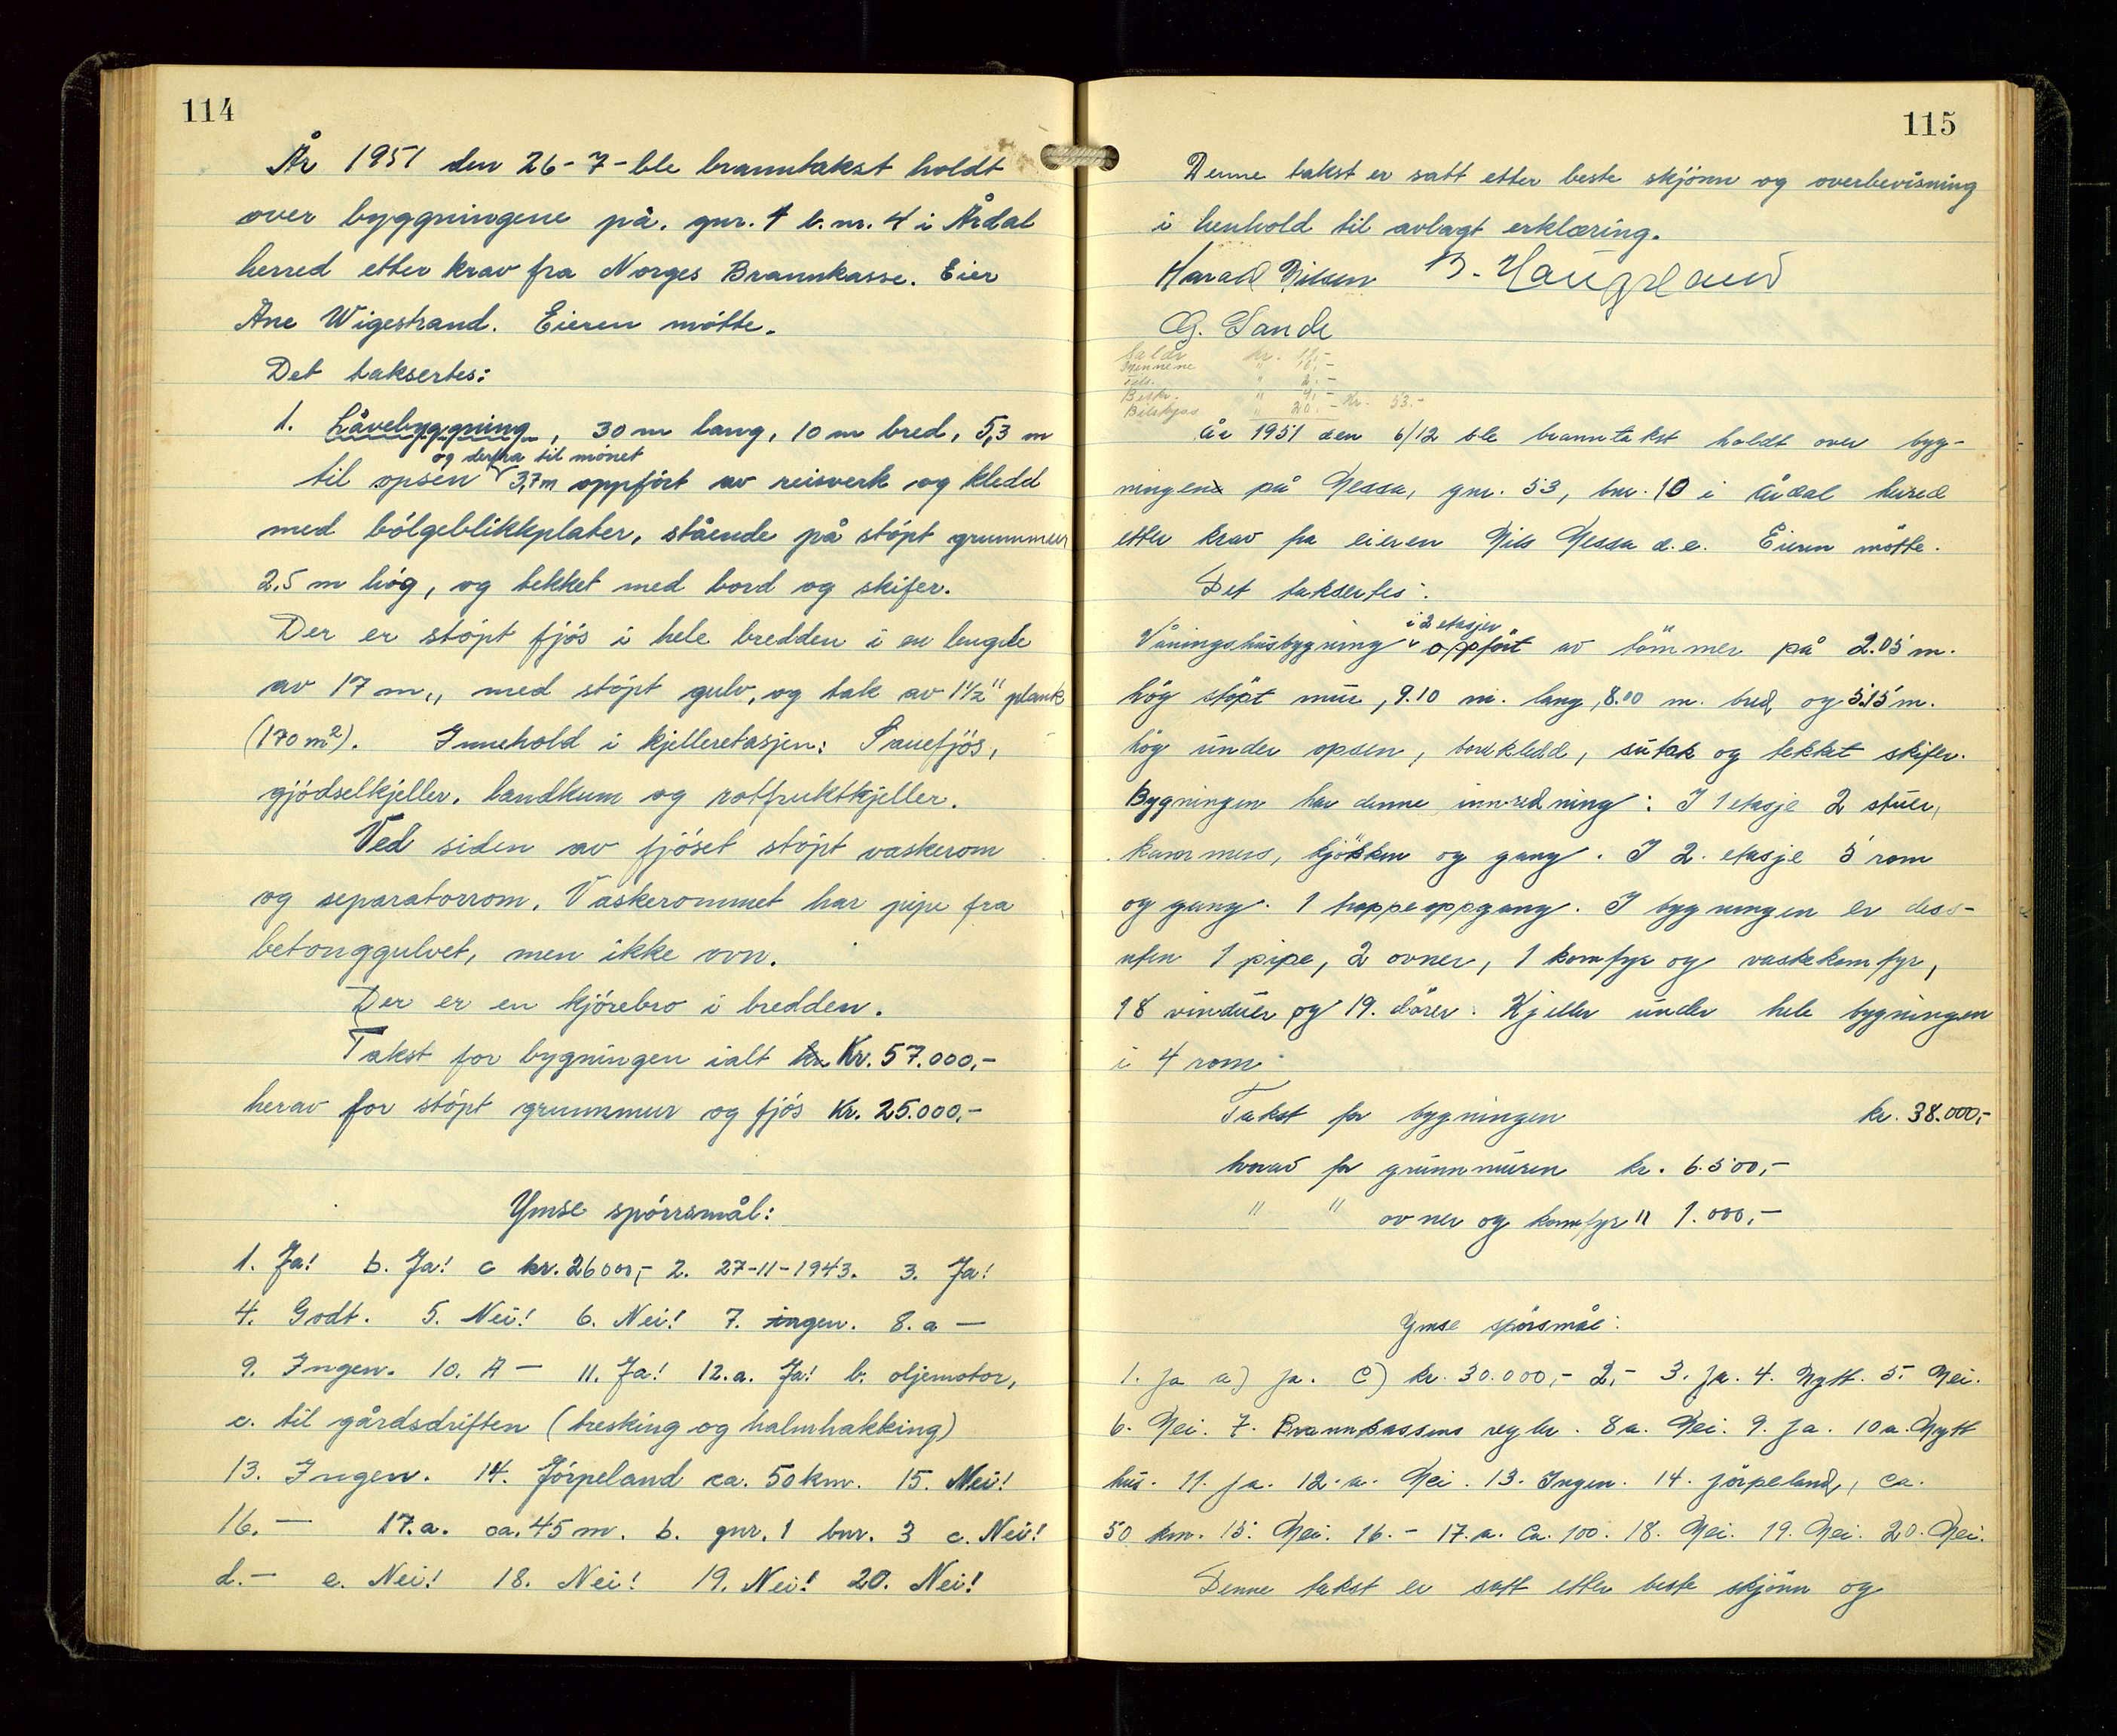 114
År 1951 den 26-7-ble branntakst holdt
over byggningene på. gnr. 1 b.nr. 4 i Årdal
herred etter krav fra Norges Brannkasse. Eier
Ane Wigestrand. Eieren møtte.
Det taksertes:
1. Låvebyggning, 30 m lang, 10 m bred, 5,3 m
og derfra til mønet
til opsen 3,7m oppført av reisverk og kledd
med bølgeblikkplater, stående på støpt grunnmur
2,5 m høg, og tekket med bord og skifer.
Der er støpt fjøs i hele bredden i en lengde
av 17 m,, med støpt gulv, og tak av 1½" plank
(170 m²). Innehold i kjelleretasjen: Sauefjøs,
gjødselkjeller, landkum og rotfruktkjeller.
Ved siden av fjøset støpt vaskerom
og separatorrom. Vaskerommet har pipe fra
betonggulvet, men ikke ovn.
Der er en kjørebro i bredden.
Takst for bygningen ialt kr Kr. 57.000,-
herav for støpt grunnmur og fjøs Kr. 25.000,-
Ymse spørrsmål:
1. Ja! b. Ja! c kr. 26000,- 2. 27-11-1943. 3. Ja!
4. Godt. 5. Nei! 6. Nei! 7. ingen. 8. a —
9. Ingen. 10. A — 11. Ja! 12.a. Ja! b. oljemotor,
c. til gårdsdriften (tresking og halmhakking)
13. Ingen. 14. Jørpeland ca. 50 km. 15. Nei!
16. — 17.a. ca. 45 m. b. gnr. 1 bnr. 3 c. Nei!
d. — e. Nei! 18. Nei! 19. Nei! 20. Nei!
115
Denne takst er satt etter beste skjønn og overbevisning
i henhold til avlagt erklæring.
Harald Nilsen B. Haugland
G. Sande
Kr. 53.-
År 1951 den 6/12 ble branntakst holdt over byg-
ningene på Nessa, gnr. 53, bnr. 10 i Årdal herred
etter krav fra eieren Nils Nessa d.e. Eieren møtte.
Det taksertes:
i 2 etasjer
Våningshusbygning oppført av tømmer på 2.05 m.
høg støpt mur, 9.10 m. lang, 8.00 m. bred og 5.15 m.
høg under opsen, bordkledd, sutak og tekket skifer.
Bygningen har denne innredning: I 1 etasje 2 stuer,
kammers, kjøkken og gang. I 2. etasje 5 rom
og gang. 1 trappeoppgang. I bygningen er dess-
uten 1 pipe, 2 ovner, 1 komfyr og vaskekomfyr,
18 vinduer og 19. dører. Kjeller under hele bygningen
i 4 rom.
Takst for bygningen kr. 38.000,-
hvorav for grunnmuren kr. 6.500,-
" " ovner og komfyr " 1.000,-
Ymse spørsmål:
1. Ja a) Ja. C) kr. 30.000,- 2,- 3. Ja. 4. Nytt. 5. Nei.
6. Nei. 7. Brannkassens regler. 8a. Nei. 9. Ja. 10a. Nytt
hus. 11. Ja. 12.a. Nei. 13. Ingen. 14. Jørpeland, ca.
50 km. 15. Nei. 16. - 17.a. Ca. 100. 18. Nei. 19. Nei. 20. Nei.
Denne takst er satt etter beste skjønn og